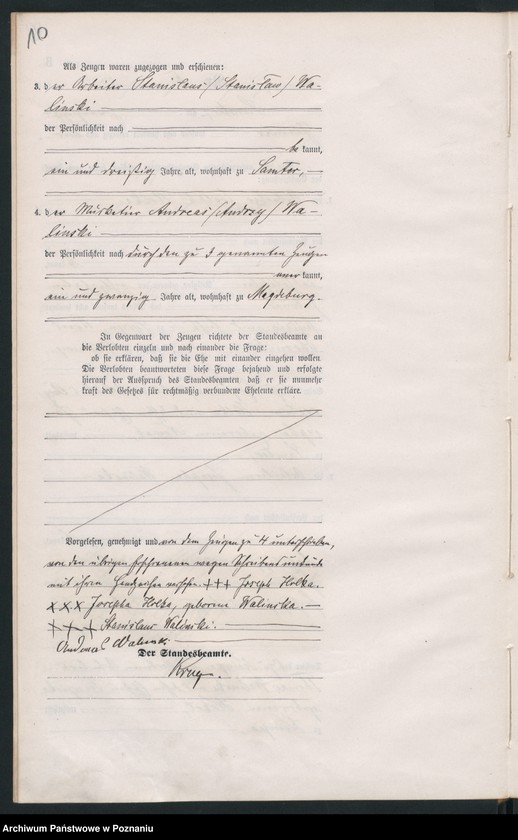 10
Als Zeugen waren zugezogen und erschienen:
3. der Arbeiter Stanislaus /Stanisław/ Wa-
linski
der Persönlichkeit nach
be kannt,
ein und dreißig Jahre alt, wohnhaft zu Samter,
4. der Musketier Andreas /Andrzy/ Wa-
linski
der Persönlichkeit nach durch den zu 3 genannten Zeugen
aner kannt,
ein und zwanzig Jahre alt, wohnhaft zu Magdeburg.
In Gegenwart der Zeugen richtete der Standesbeamte an
die Verlobten einzeln und nach einander die Frage:
ob sie erklären, daß sie die Ehe mit einander eingehen wollen.
Die Verlobten beantworteten diese Frage bejahend und erfolgte
hierauf der Ausspruch des Standesbeamten, daß er sie nunmehr
kraft des Gesetzes für rechtmäßig verbundene Eheleute erkläre.
Vorgelesen, genehmigt und von dem Zeugen zu 4 unterschrieben,
von den übrigen Erschienenen wegen Schreibensunkunde
mit ihren Handzeichen versehen. +++ Joseph Holka.
+++ Josepha Holka, geborene Walinska.
+++ Stanislaus Walinski.
Andreas Walinski
Der Standesbeamte.
Krug.
Archiwum Państwowe w Poznaniu